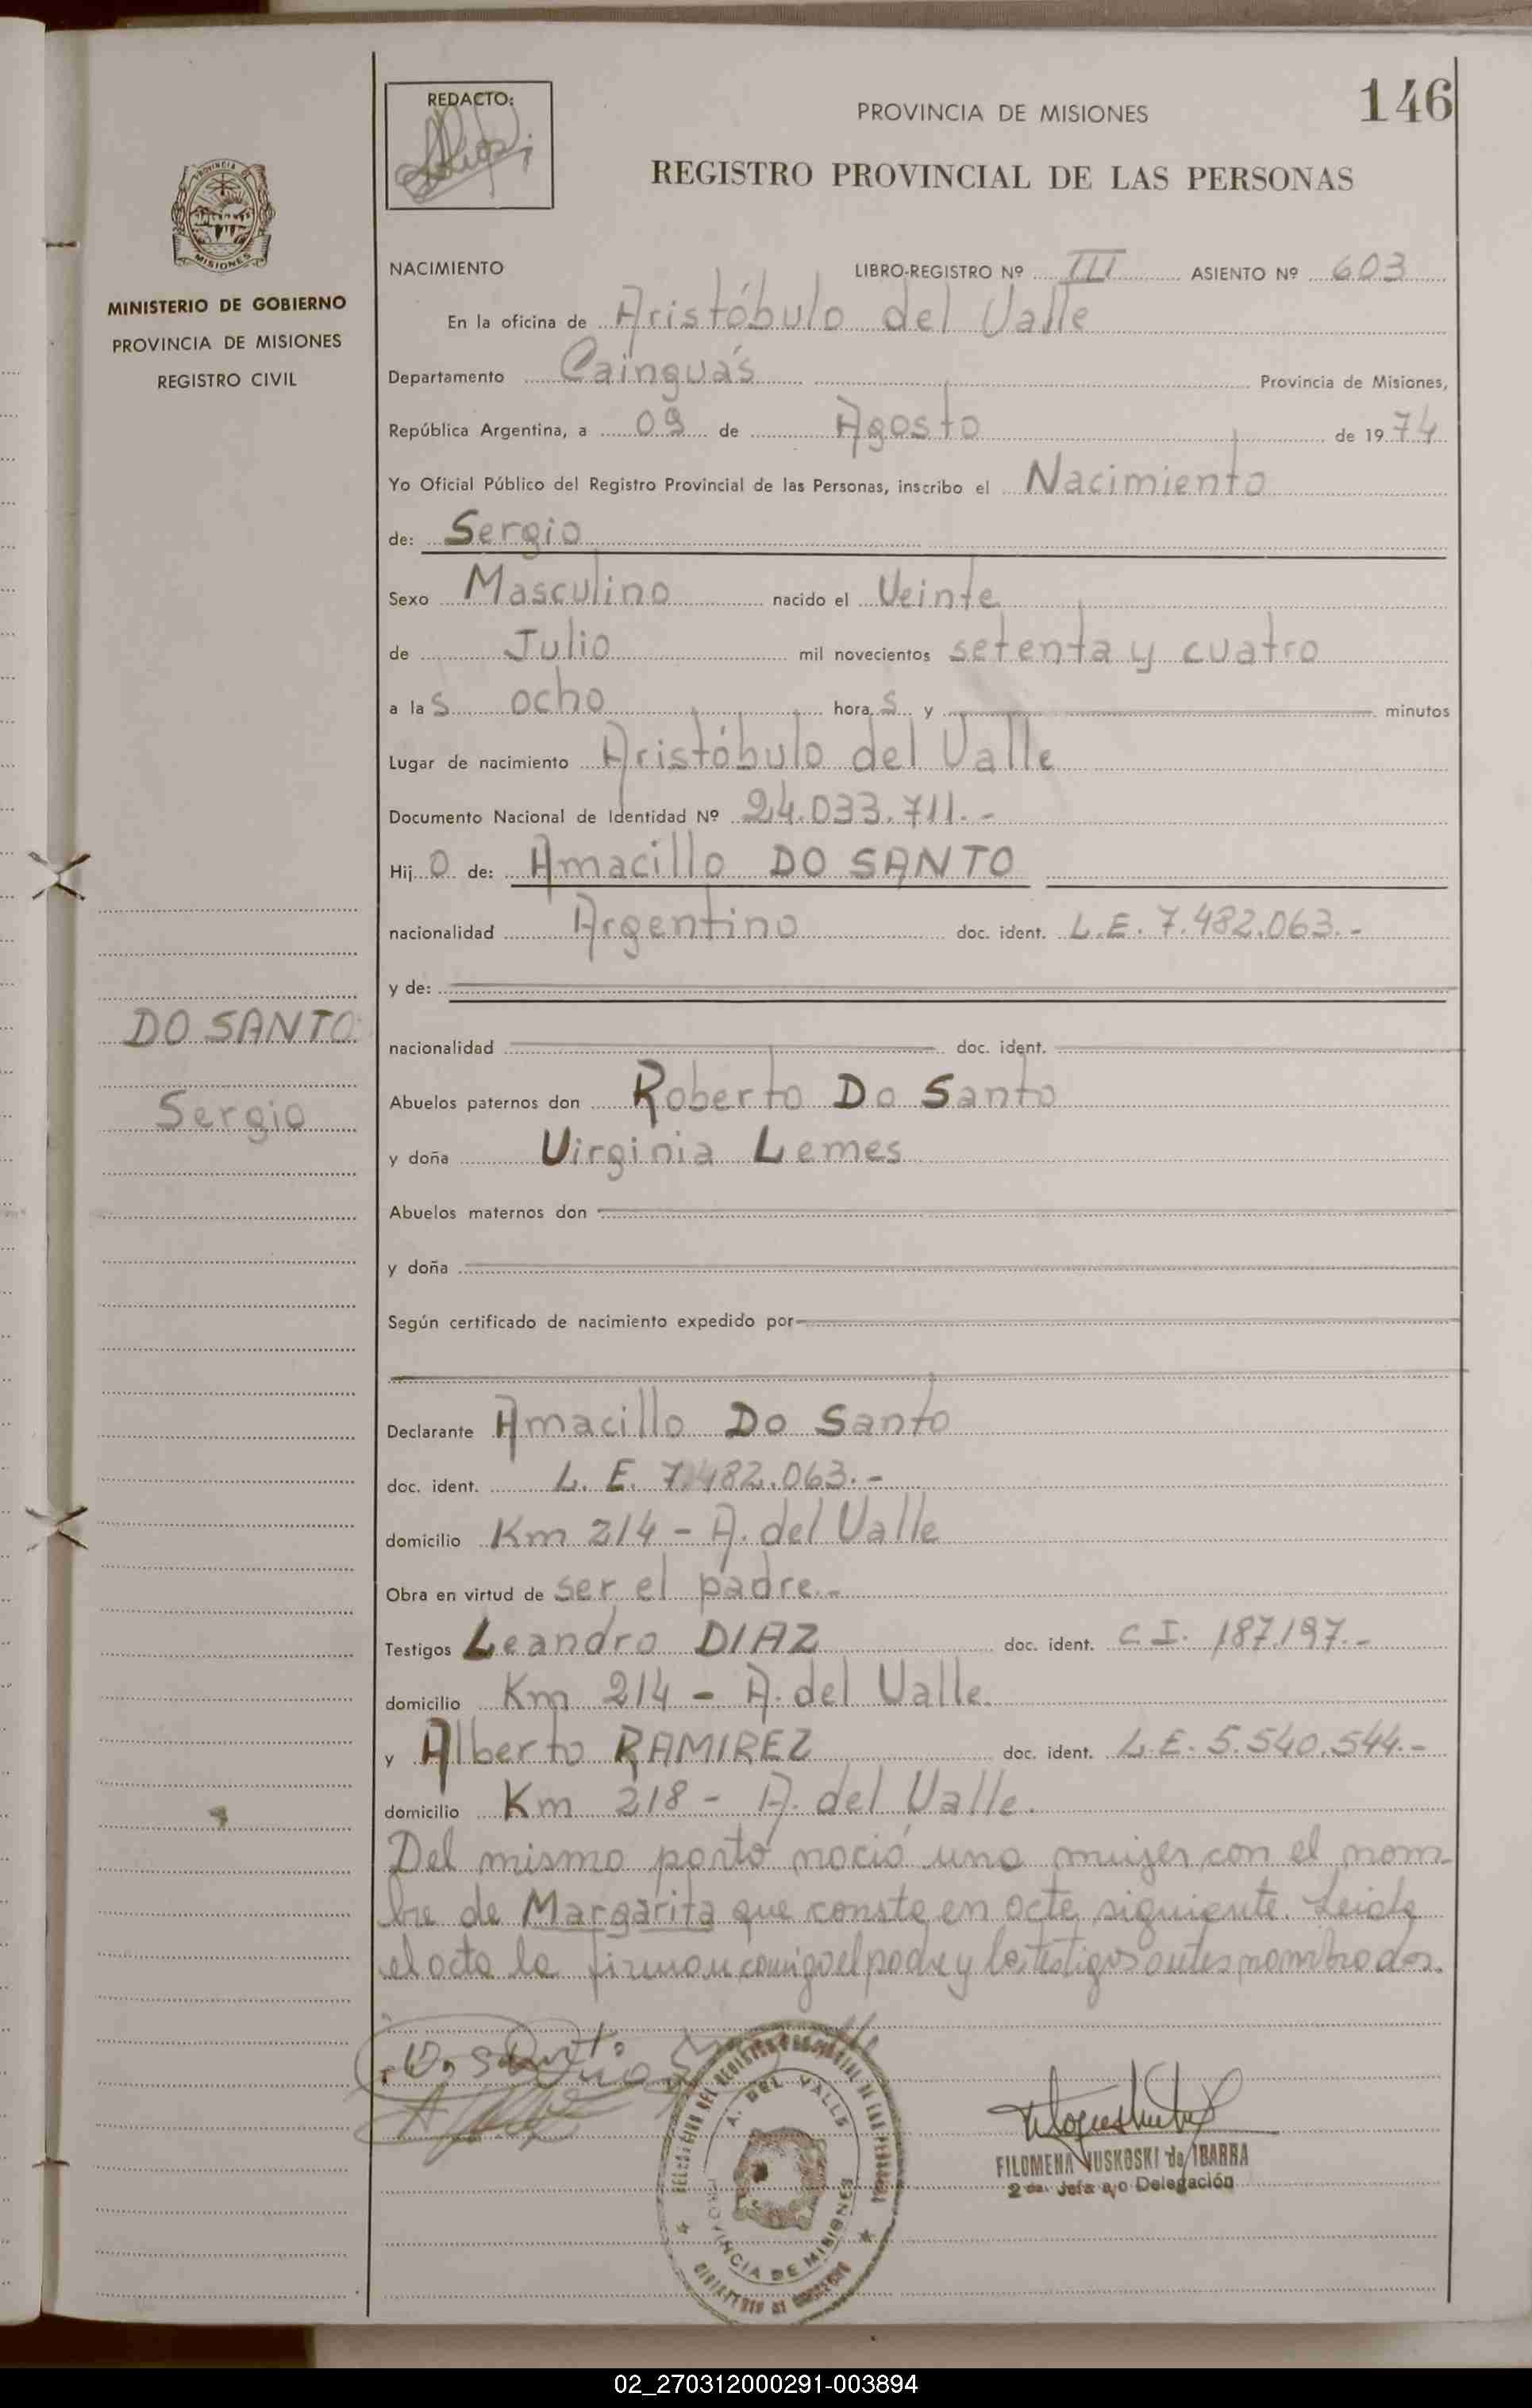 146
REDACTO:
PROVINCIA DE MISIONES
REGISTRO PROVINCIAL DE LAS PERSONAS
PROVINCIA
MISIONES
MINISTERIO DE GOBIERNO
PROVINCIA DE MISIONES
REGISTRO CIVIL
NACIMIENTO LIBRO-REGISTRO Nº III ASIENTO Nº 603
En la oficina de Aristóbulo del Valle
Departamento Cainguás Provincia de Misiones,
República Argentina, a 09 de Agosto de 1974
Yo Oficial Público del Registro Provincial de las Personas, inscribo el Nacimiento
de: Sergio
Sexo Masculino nacido el Veinte
de Julio mil novecientos setenta y cuatro
a las ocho horas y minutos
Lugar de nacimiento Aristóbulo del Valle
Documento Nacional de Identidad Nº 24.033.711.-
Hijo de: Amacillo DO SANTO
nacionalidad Argentino doc. ident. L.E. 7.482.063.-
y de:
DO SANTO
nacionalidad doc. ident.
Sergio
Abuelos paternos don Roberto Do Santo
y doña Virginia Lemes
Abuelos maternos don
y doña
Según certificado de nacimiento expedido por
Declarante Amacillo Do Santo
doc. ident. L.E. 7.482.063.-
domicilio Km 214 - A. del Valle
Obra en virtud de ser el padre.-
Testigos Leandro DIAZ doc. ident. C.I. 187.197.-
domicilio Km 214 - A. del Valle.
y Alberto RAMIREZ doc. ident. L.E. 5.540.544.-
domicilio Km 218 - A. del Valle.
Del mismo parto nació una mujer con el nom-
bre de Margarita que consta en acta siguiente. Leida
el acta la firman comigo el padre y los testigos antes nombrados.
Do Santo
A. DEL VALLE
PROVINCIA DE MISIONES
FILOMENA YUSKOSKI de IBARRA
2da. Jefa a/c Delegación
02_270312000291-003894